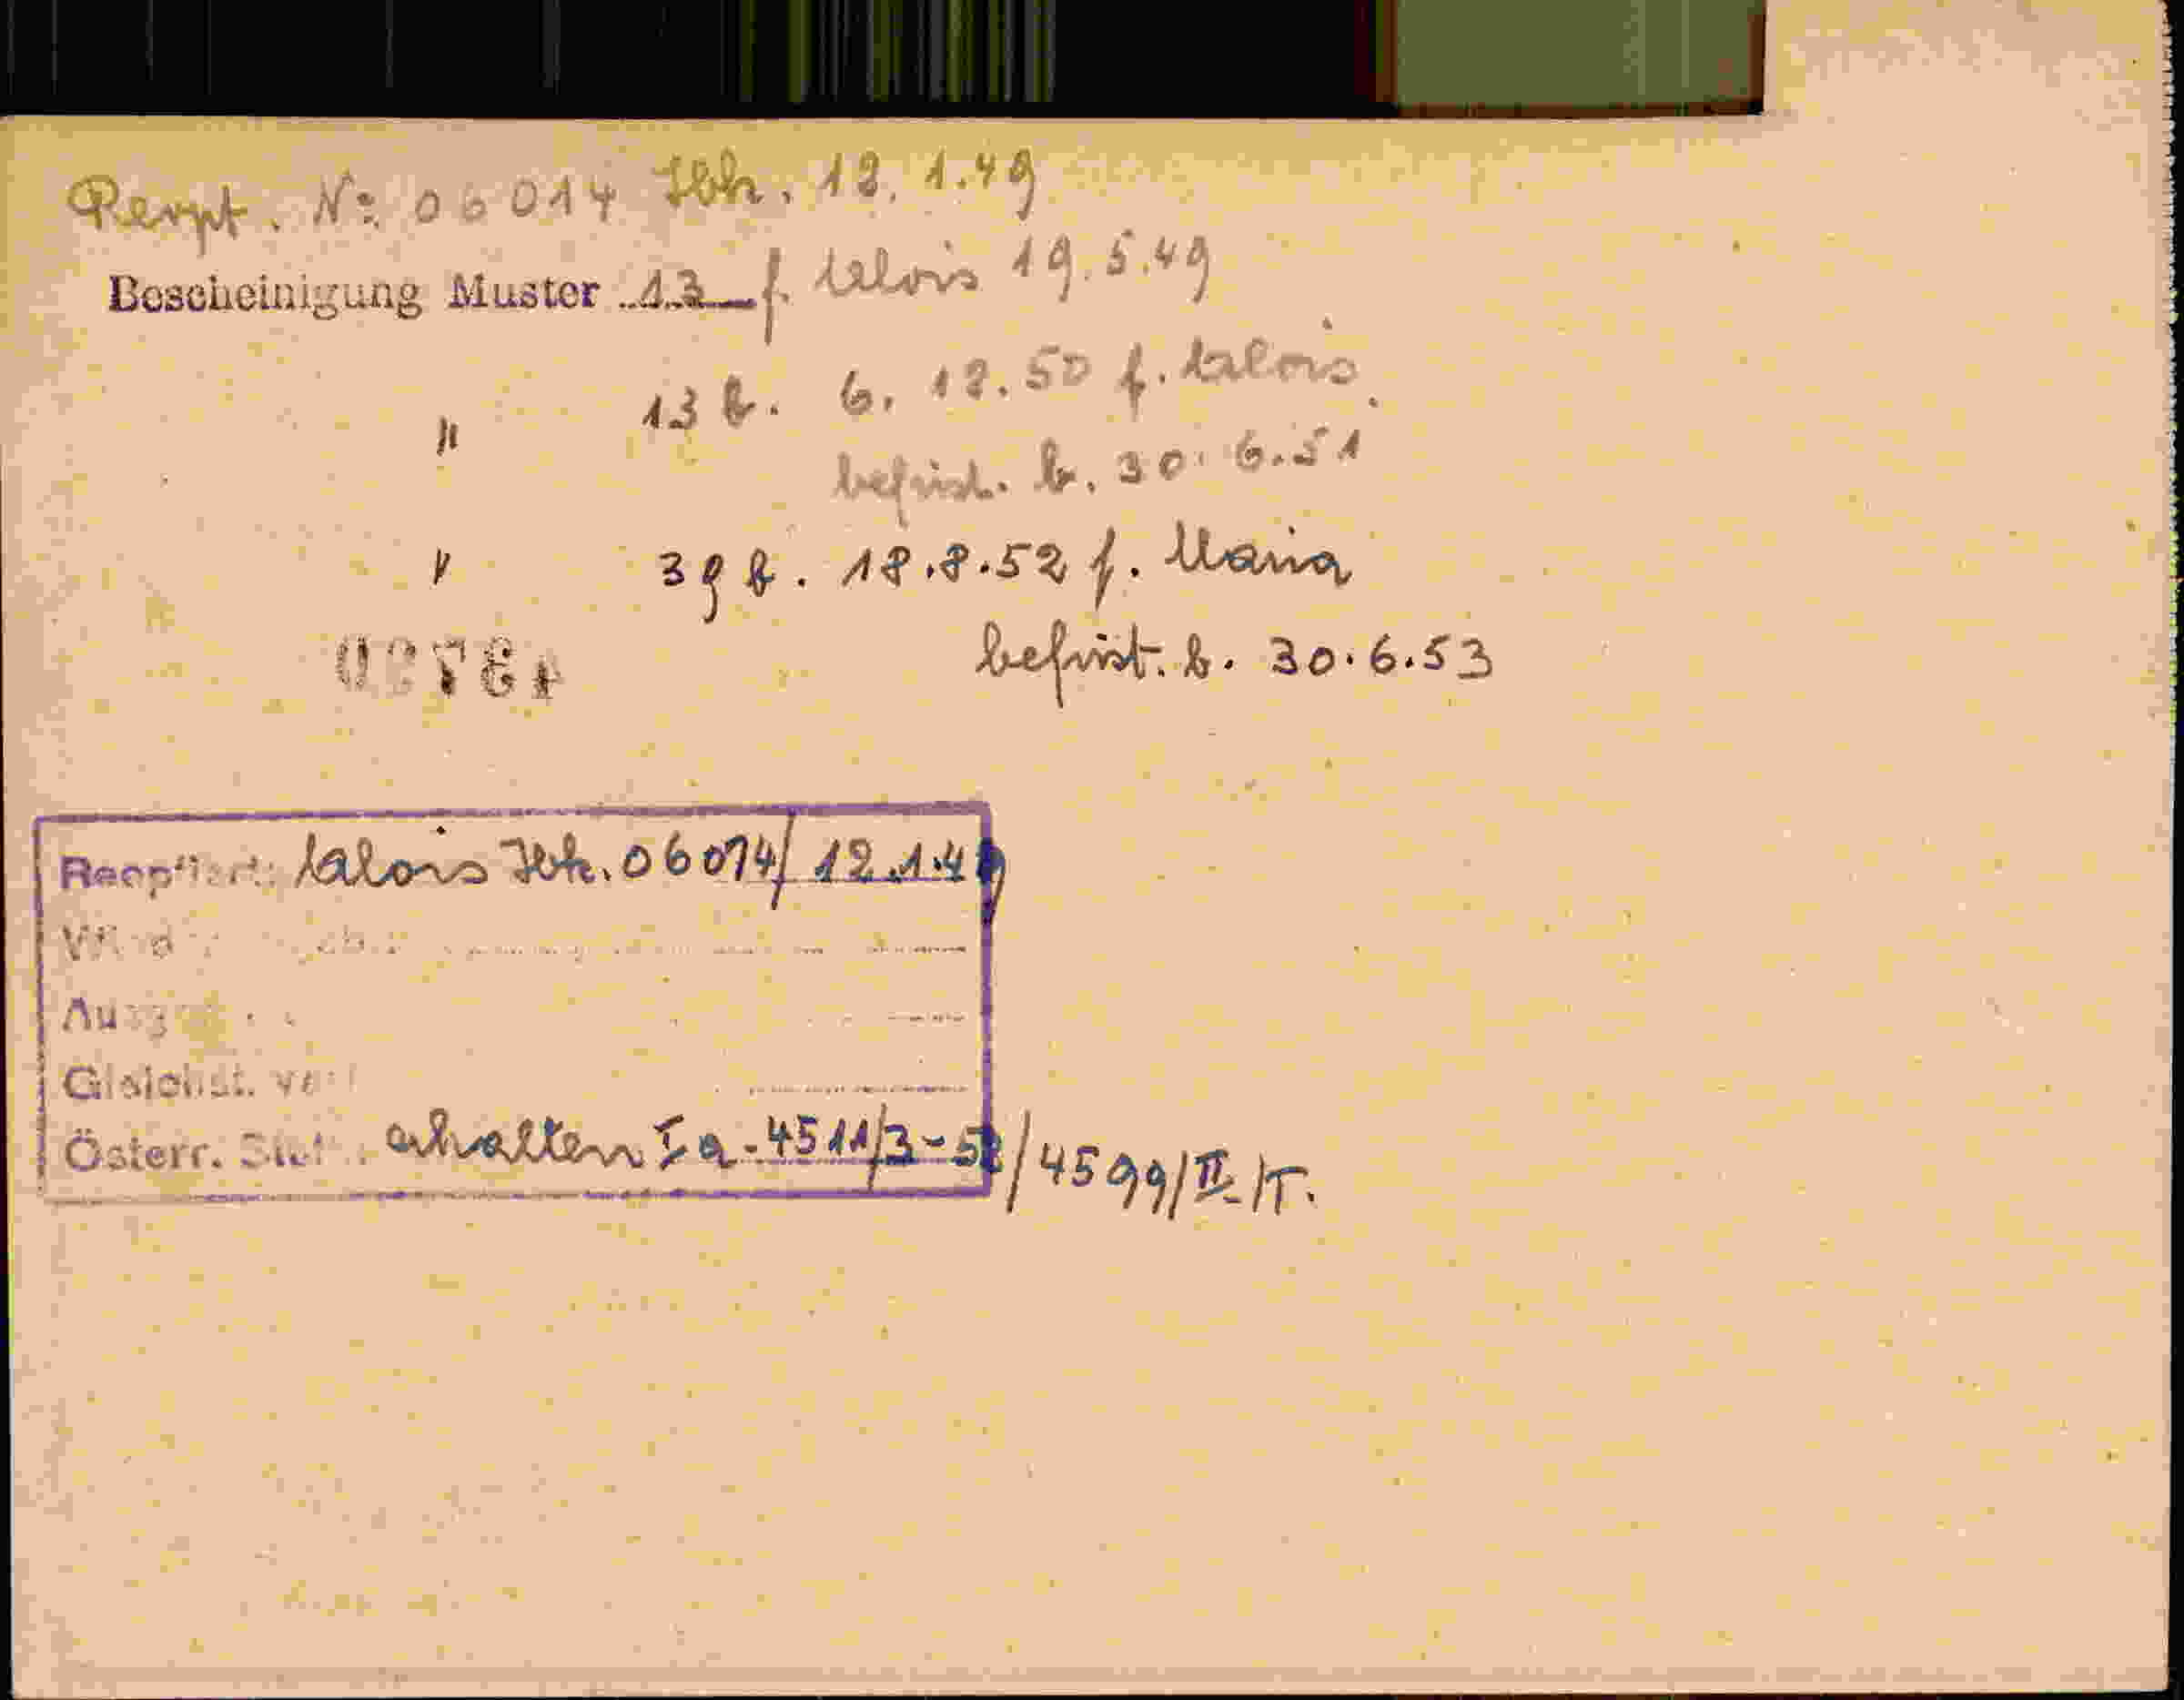 Reopt. No. 06014 Ibk. 12. 1.49
Bescheinigung Muster 13 f. Alois 19.5.49
" 13 b. 6. 12. 50 f. Alois
befrist. b. 30. 6. 51
" 39 b. 18.8.52 f. Maria
befrist. b. 30.6.53
Reoptiert: Alois Ibk. 06014/ 12.1.49
Gleichst.
Österr. erhalten Ia-4511/3-52/4599/II/T.